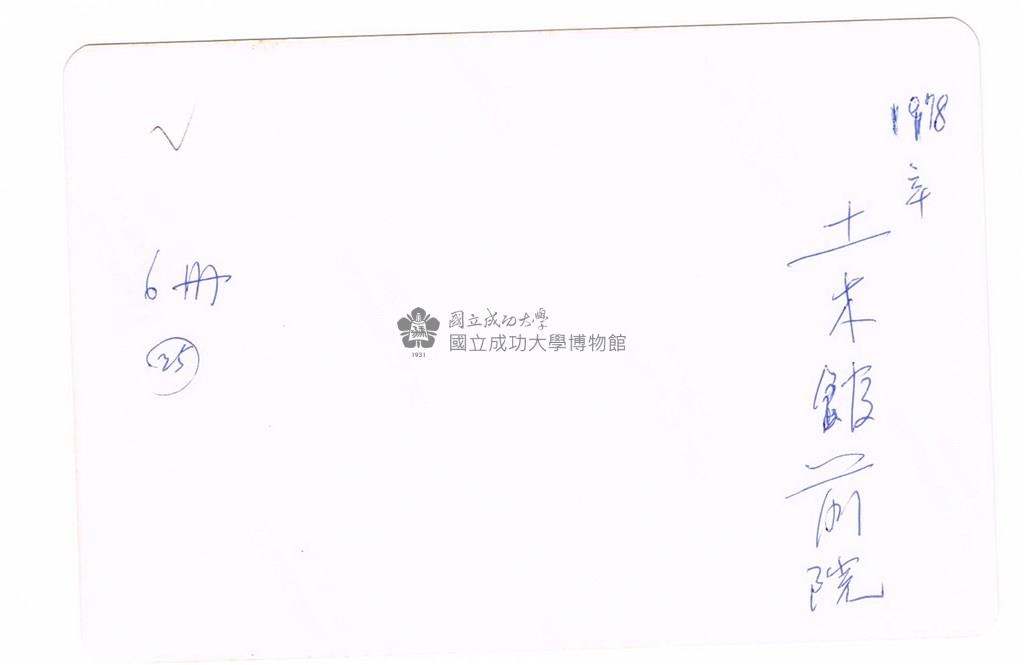 1978
年
土木館前院
6冊
25
國立成功大學
國立成功大學博物館
1931